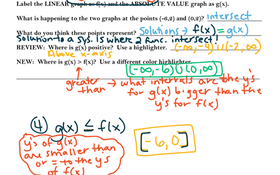 Label the LINEAR graph as f(x) and the ABSOLUTE VALUE graph as g(x).
What is happening to the two graphs at the points (-6,2) and (0,8)? intersect
What do you think these points represent? Solutions → f(x) = g(x)
Solution to a sys. is where 2 func. intersect!
REVIEW: Where is g(x) positive? Use a highlighter. (-∞,-4) U (-2,∞)
Above x-axis
NEW: Where is g(x) > f(x)? Use a different color highlighter. (-∞,-6) U (0,∞)
greater than → what intervals are the y's
for g(x) bigger than the
y's for f(x)
④ g(x) ≤ f(x) [-6,0]
y's of g(x)
are smaller than
or = to the y's
of f(x)